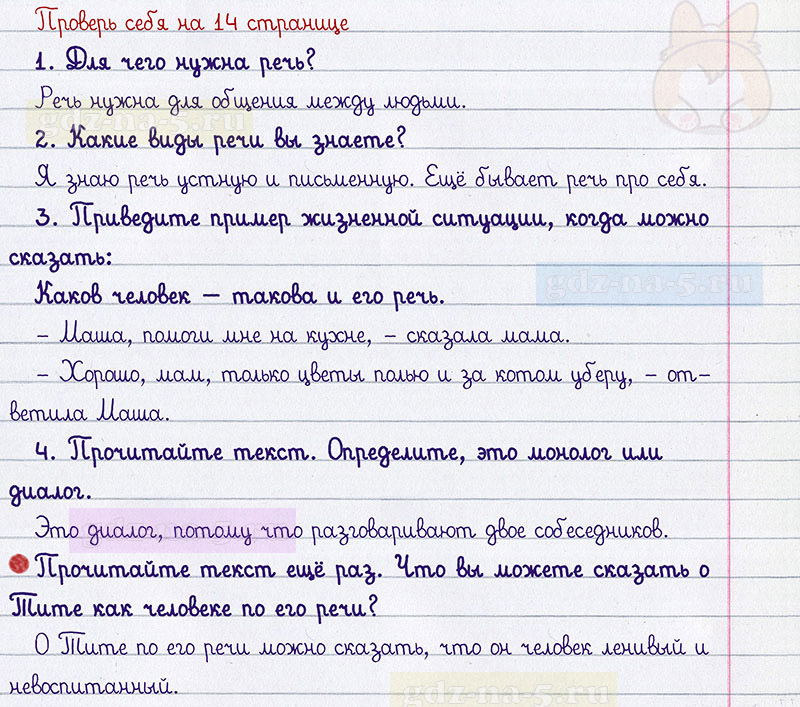 Проверь себя на 14 странице
1. Для чего нужна речь?
Речь нужна для общения между людьми.
gdz-na-5.ru
2. Какие виды речи вы знаете?
Я знаю речь устную и письменную. Ещё бывает речь про себя.
3. Приведите пример жизненной ситуации, когда можно
сказать:
gdz-na-5.ru
Каков человек – такова и его речь.
– Маша, помоги мне на кухне, – сказала мама.
– Хорошо, мам, только цветы полью и за котом уберу, – от–
ветила Маша.
4. Прочитайте текст. Определите, это монолог или
диалог.
Это диалог, потому что разговаривают двое собеседников.
Прочитайте текст ещё раз. Что вы можете сказать о
Тите как человеке по его речи?
О Тите по его речи можно сказать, что он человек ленивый и
невоспитанный.
gdz-na-5.ru